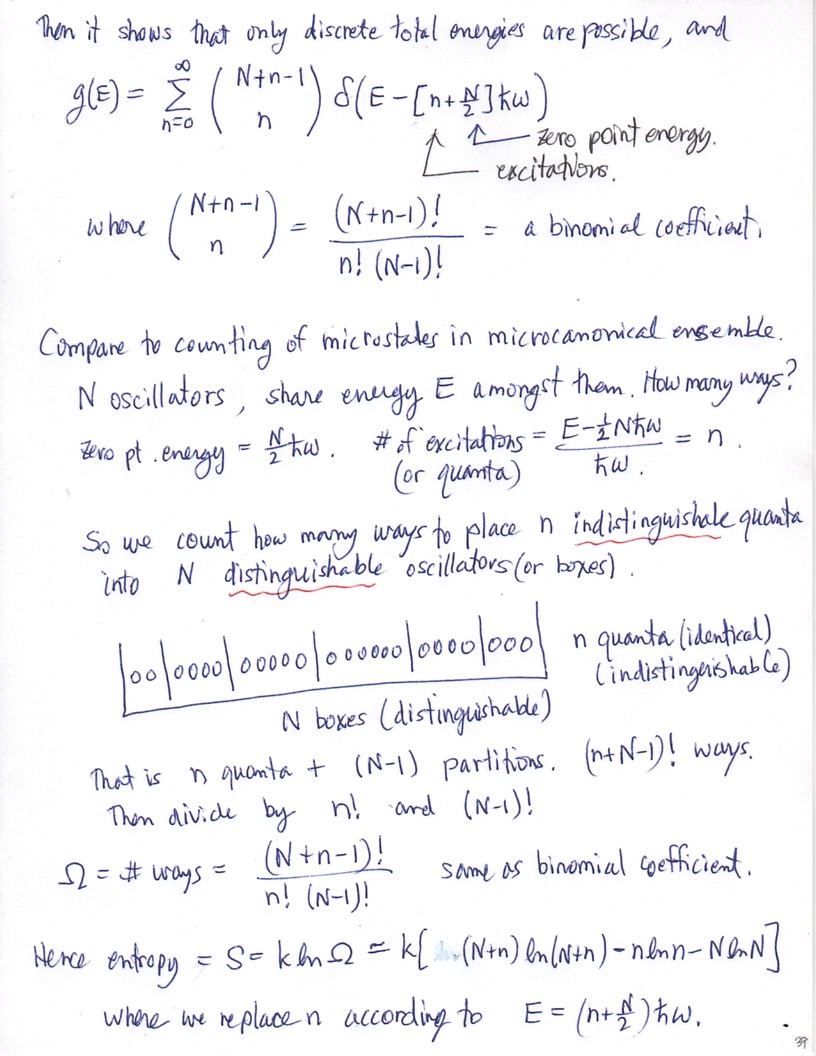 Then it shows that only discrete total energies are possible, and
g(E) = ∑_{n=0}^{∞} (N+n-1 choose n) δ(E - [n + N/2]ħω)
zero point energy.
excitations.
where (N+n-1 choose n) = (N+n-1)! / n! (N-1)! = a binomial coefficient.
Compare to counting of microstates in microcanonical ensemble.
N oscillators, share energy E amongst them. How many ways?
Zero pt. energy = N/2 ħω. # of excitations = (E - ½Nħω) / ħω. = n.
(or quanta)
So we count how many ways to place n indistinguishale quanta
into N distinguishable oscillators (or boxes).
|oo|oooo|ooooo|oooooo|oooo|ooo| n quanta (identical)
(indistinguishable)
N boxes (distinguishable)
That is n quanta + (N-1) partitions. (n+N-1)! ways.
Then divide by n! and (N-1)!
Ω = # ways = (N+n-1)! / n! (N-1)! same as binomial coefficient.
Hence entropy = S = k ln Ω ≃ k[(N+n) ln(N+n) - n ln n - N ln N]
where we replace n according to E = (n + N/2)ħω.
39